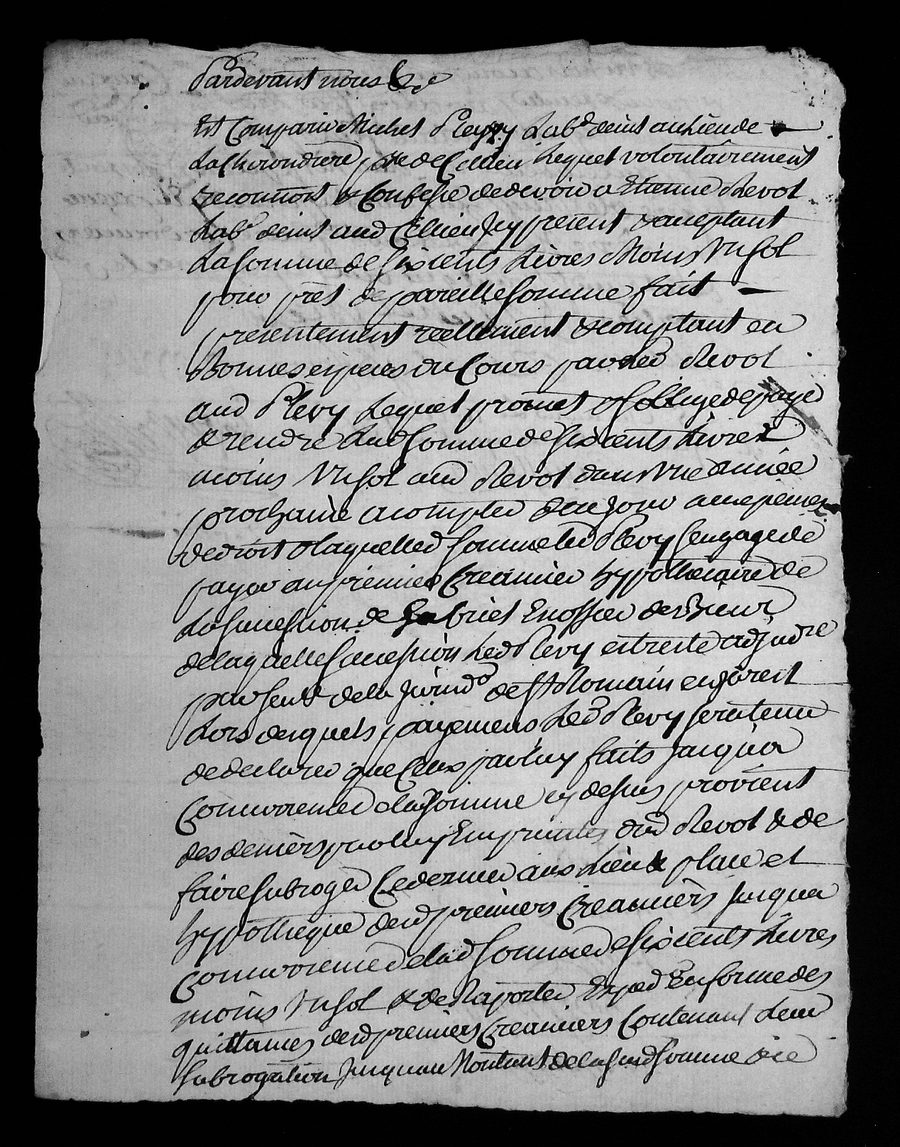 Pardevant nous &c
Est Comparu Michel Plevy Labr demt au lieu de
La Chirondiere psse de Cellieu lequel volontairement
reconnoit & Confesse de devoir a Etienne Revol
Labr demt aud Cellieu Jcy present & acceptant
La Somme de Six cents Livres Moins Un Sol
pour prêt de pareille Somme fait
presentement réellement & comptant en
Bonnes especes du Cours par led Revol
aud Plevy Lequel promet & oblige de paye
& rendre Lad Somme de Six cents Livres
moins Un Sol aud Revol dans Une année
prochaine a compter de ce jour a peine
de droit & laquelle Somme led Plevy S'engage de
payer au premier Creancier hypothecaire de
La Succession de Gabriel
de laquelle Succession Led Plevy est resté adjudre
par Sentce de la Juridon de St Romain en Jarest
Lors desquels payemens Led Plevy Sera tenu
de declarer que Ceux par luy faits Jusqu'a
Concurrence de la Somme cy dessus provient
des deniers par luy Empruntés dud Revol & de
faire Subroger Ce dernier aux Lieu & place et
hypotheque desd premiers Creanciers Jusqua
Concurrence de lad Somme de Six cents Livres
moins Un Sol & de Raporter Exped En forme des
quittances desd premiers Creanciers Contenant Leur
Subrogation Jusquau Montant de la Susd Somme